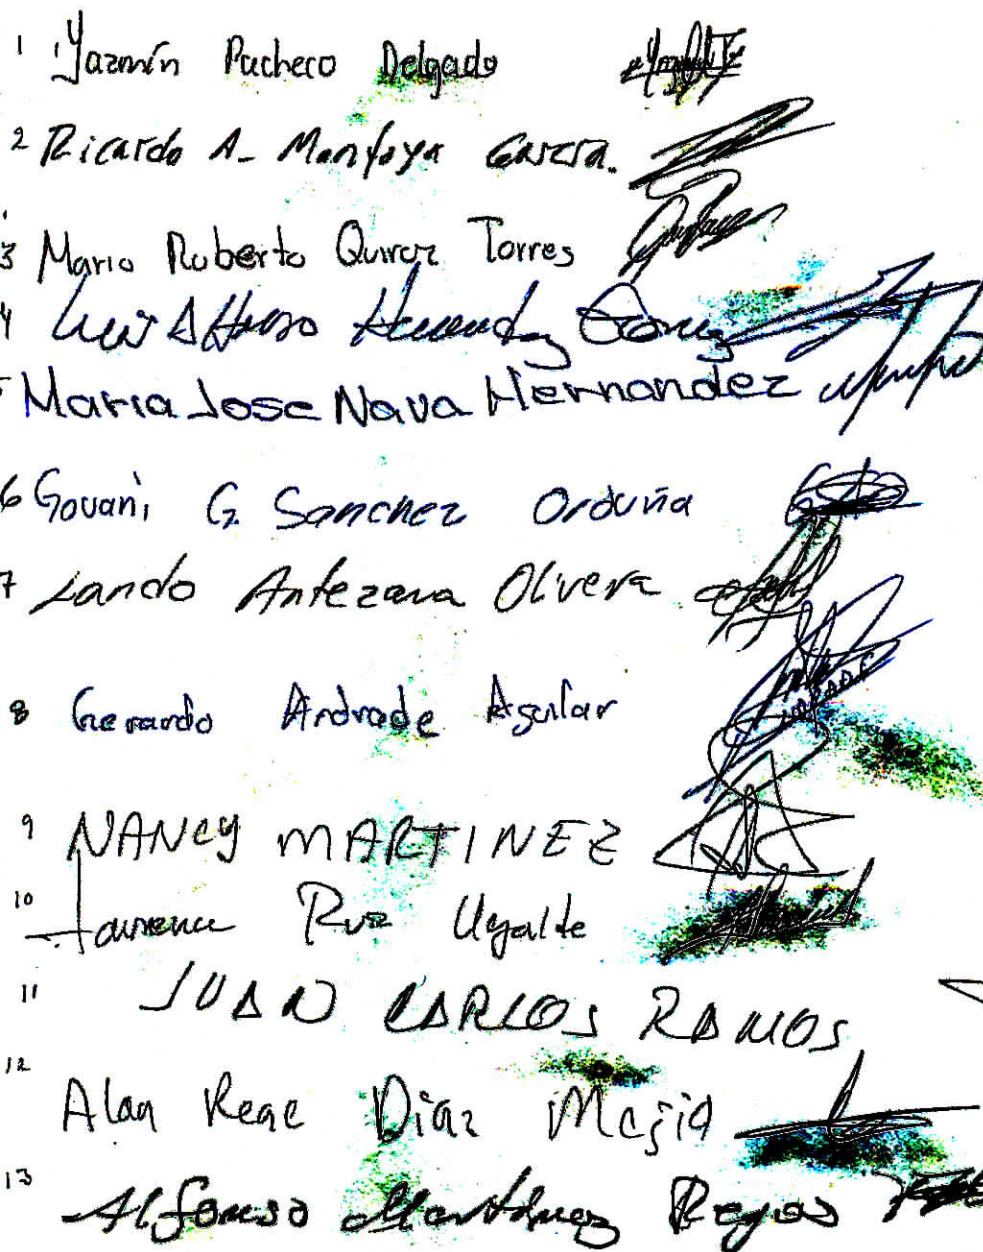 1 Yazmín Pacheco Delgado
2 Ricardo A- Montoya García.
3 Mario Roberto Quiroz Torres
4 Luis Alfonso Hernandez Gómez
5 Maria Jose Nava Hernandez
6 Govani G. Sanchez Orduña
7 Lando Antezana Olivera
8 Gerardo Andrade Aguilar
9 NANCY MARTINEZ
10 Ruz Ugalde
11 JUAN CARLOS RAMOS
12 Alan Rene Diaz Mejia
13 Alfonso Martinez Reyes